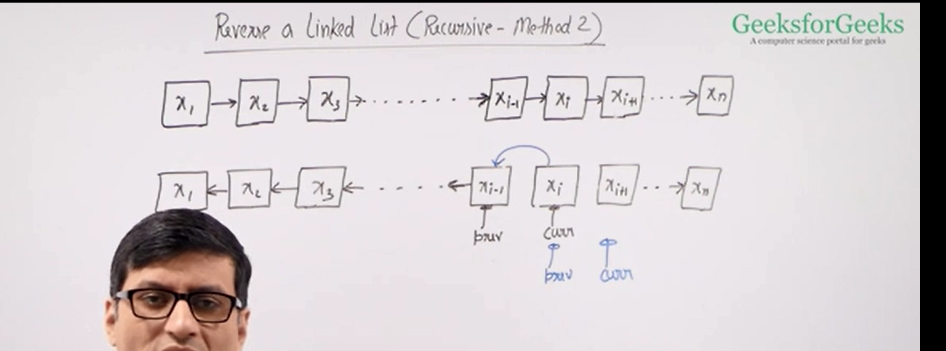 Reverse a Linked List (Recursive - Method 2)
GeeksforGeeks
A computer science portal for geeks
x₁ → x₂ → x₃ → ....... → xᵢ₋₁ → xᵢ → xᵢ₊₁ ... → xₙ
x₁ ← x₂ ← x₃ ← .... ← xᵢ₋₁ xᵢ xᵢ₊₁ .. → xₙ
prev curr
prev curr